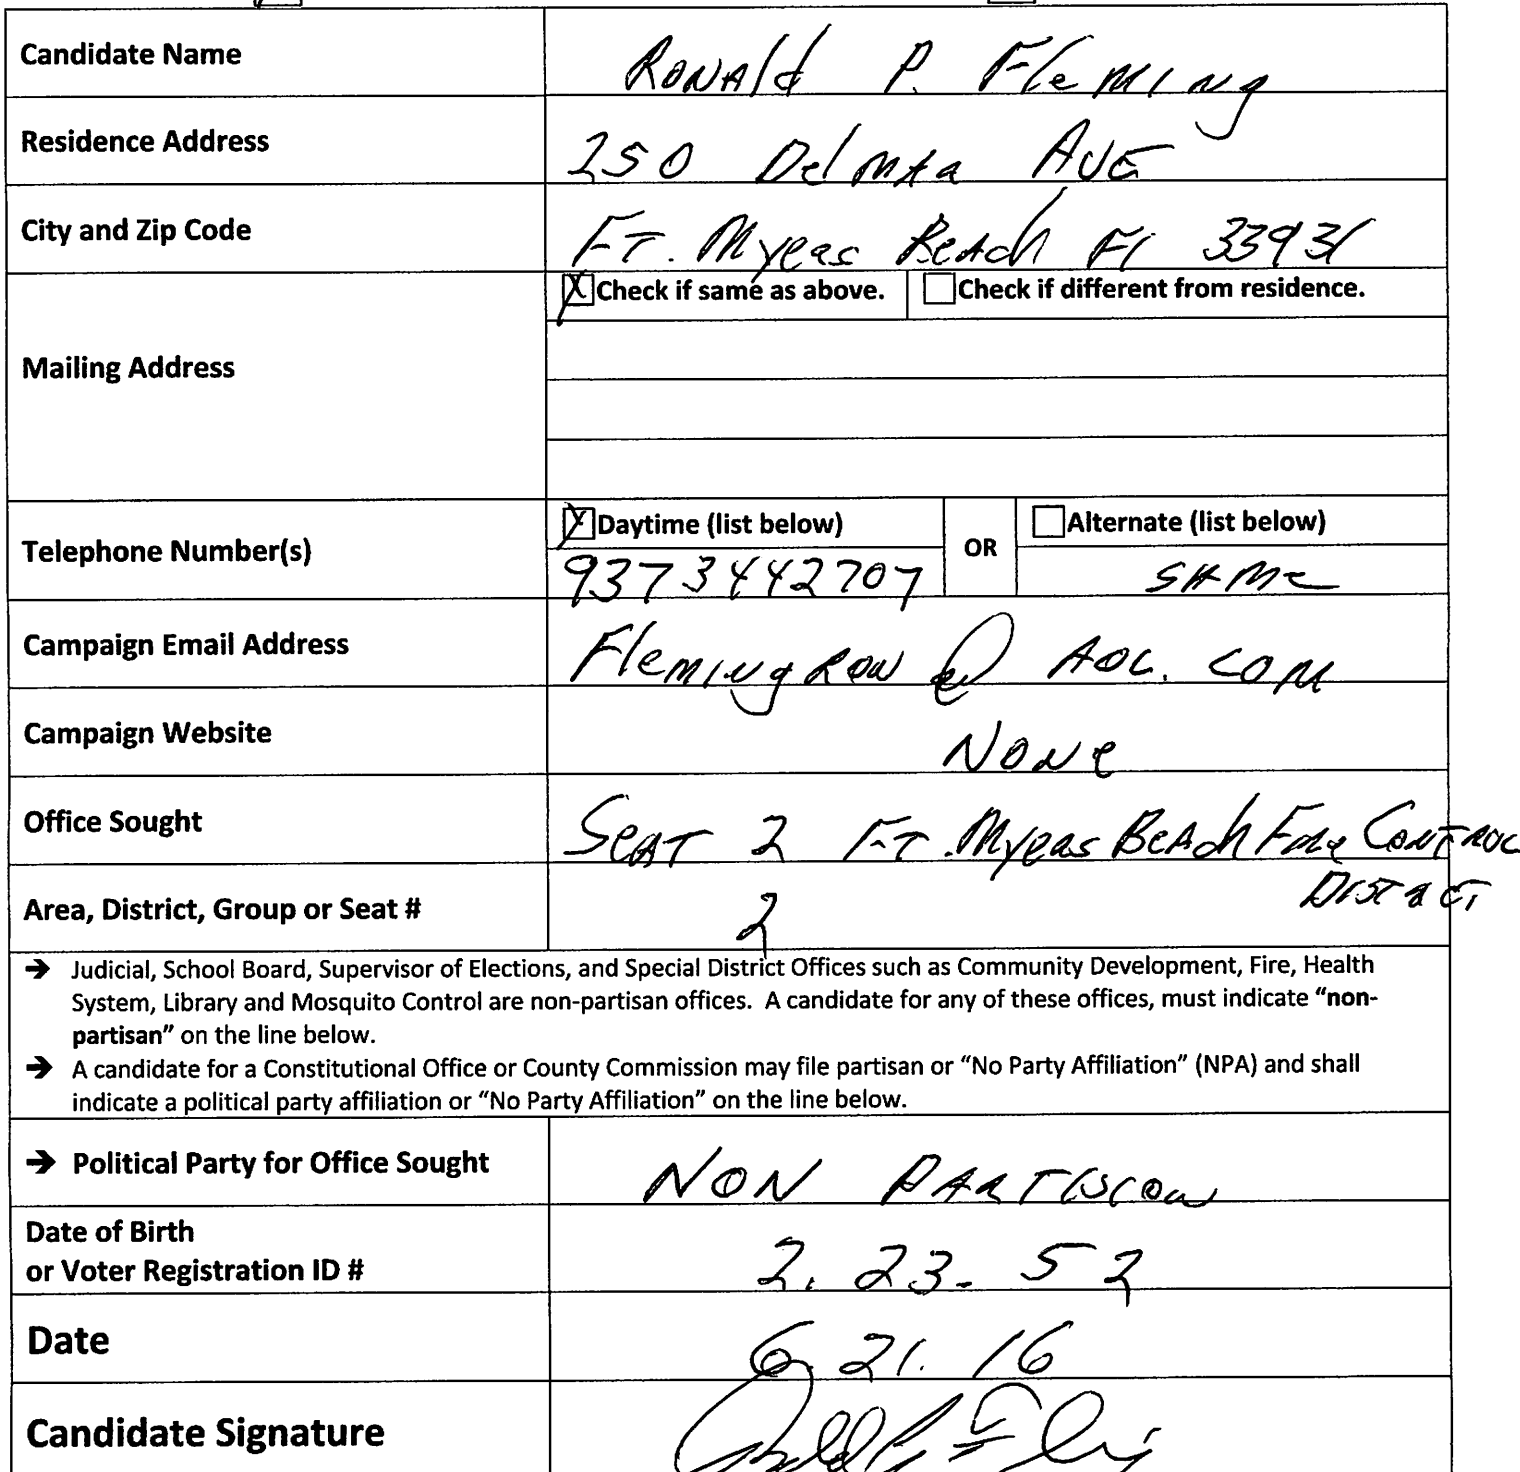 Candidate Name
RONAld P. FleMINg
Residence Address
250 Delmar AVE
City and Zip Code
FT. Myers BeAch Fl 33931
X Check if same as above. Check if different from residence.
Mailing Address
Telephone Number(s)
X Daytime (list below) OR Alternate (list below)
9373442707 SAMe
Campaign Email Address
FlemingRon @ AOL.COM
Campaign Website
NoNe
Office Sought
SeAT 2 FT. Myers BeAch Fire CONTROL
DISTRICT
Area, District, Group or Seat #
2
→ Judicial, School Board, Supervisor of Elections, and Special District Offices such as Community Development, Fire, Health
System, Library and Mosquito Control are non-partisan offices. A candidate for any of these offices, must indicate “non-
partisan” on the line below.
→ A candidate for a Constitutional Office or County Commission may file partisan or “No Party Affiliation” (NPA) and shall
indicate a political party affiliation or “No Party Affiliation” on the line below.
→ Political Party for Office Sought
NON
Date of Birth
or Voter Registration ID #
2. 23. 52
Date
6. 21. 16
Candidate Signature